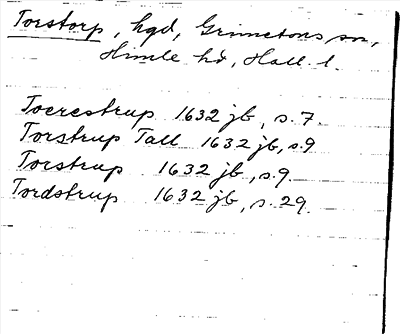 Torstorp, hgd, Grimetons sn,
Himle hd, Hall. l.
Toerestrup 1632 jb, s. 7.
Torstrup Tall 1632 jb, s. 9
Torstrup 1632 jb, s. 9.
Tordstrup 1632 jb, s. 29.